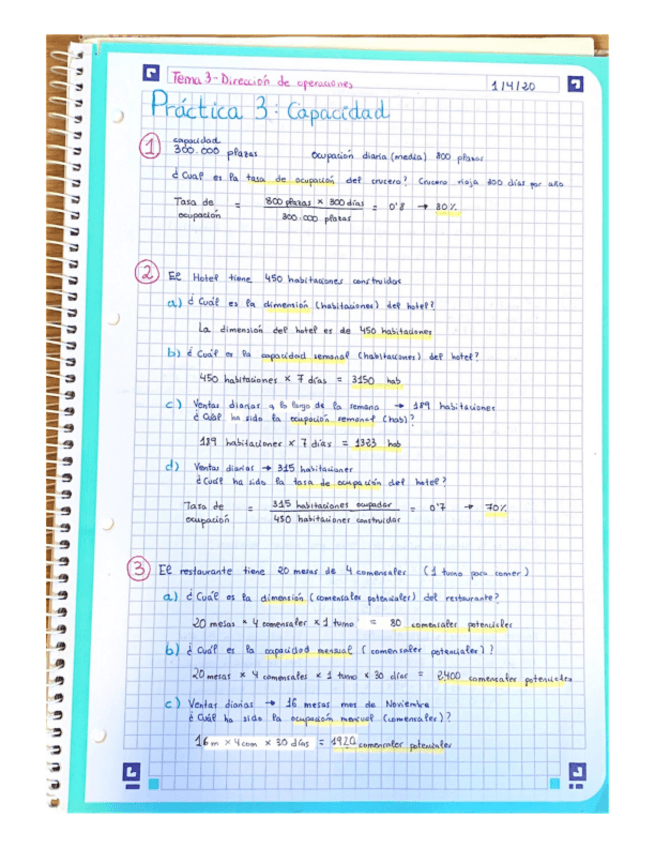 Tema 3 - Dirección de operaciones
1/4/20
Práctica 3: Capacidad
1 capacidad
300.000 plazas ocupación diaria (media) 800 plazas
¿Cuál es la tasa de ocupación del crucero? Crucero viaja 300 días por año
Tasa de ocupación = 800 plazas × 300 días / 300.000 plazas = 0'8 → 80%
2 El Hotel tiene 450 habitaciones construidas
a) ¿Cuál es la dimensión (habitaciones) del hotel?
La dimensión del hotel es de 450 habitaciones
b) ¿Cuál es la capacidad semanal (habitaciones) del hotel?
450 habitaciones × 7 días = 3150 hab
c) Ventas diarias a lo largo de la semana → 189 habitaciones
¿Cuál ha sido la ocupación semanal (hab)?
189 habitaciones × 7 días = 1323 hab
d) Ventas diarias → 315 habitaciones
¿Cuál ha sido la tasa de ocupación del hotel?
Tasa de ocupación = 315 habitaciones ocupadas / 450 habitaciones construidas = 0'7 → 70%
3 El restaurante tiene 20 mesas de 4 comensales (1 turno para comer)
a) ¿Cuál es la dimensión (comensales potenciales) del restaurante?
20 mesas × 4 comensales × 1 turno = 80 comensales potenciales
b) ¿Cuál es la capacidad mensual (comensales potenciales)?
20 mesas × 4 comensales × 1 turno × 30 días = 2400 comensales potenciales
c) Ventas diarias → 16 mesas mes de Noviembre
¿Cuál ha sido la ocupación mensual (comensales)?
16m × 4com × 30 días = 1920 comensales potenciales